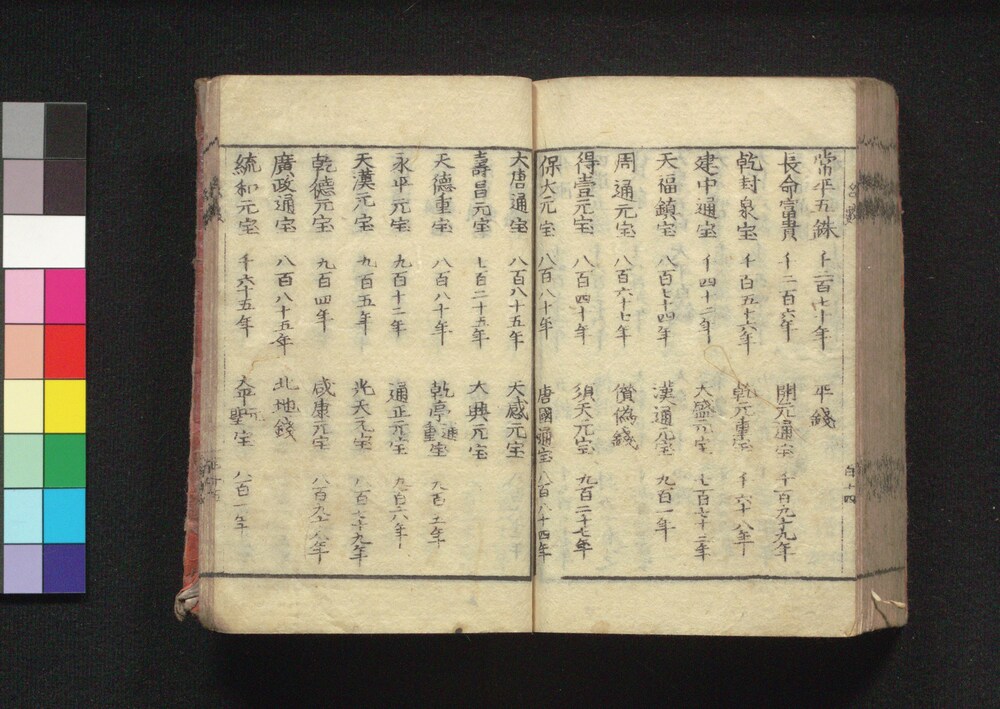 常平五銖 千二百七十年 平錢
長命富貴 千二百六年 開元通宝 千百九十九年
乾封泉宝 千百五十六年 乾元重宝 千六十八年
建中通宝 千四十二年 大盛元宝 七百七十二年
天福鎮宝 八百七十四年 漢通元宝 九百一年
周通元宝 八百六十七年 償偽錢
得壹元宝 八百四十年 須天元宝 九百二十七年
保大元宝 八百八十年 唐國通宝 八百八十四年
大唐通宝 八百八十五年 天感元宝
壽昌元宝 七百二十五年 大興元宝
天德重宝 八百八十年 乾亨重宝 九百二年
永平元宝 九百十二年 通正元宝 九百六年
天漢元宝 九百五年 光天元宝 八百七十九年
乾德元宝 九百四年 咸康元宝 八百九十八年
廣政通宝 八百八十五年 北地錢
統和元宝 千六十五年 太平聖宝 八百一年
百十四